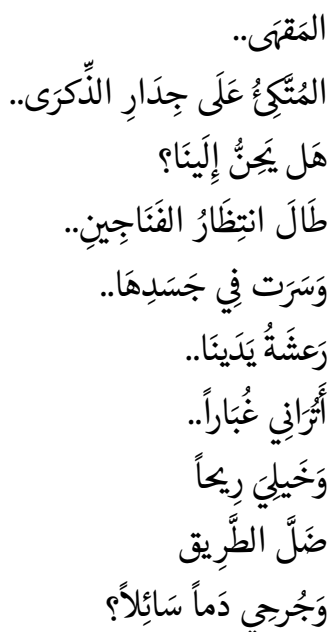 المَقهَى..
المُتَّكِئُ عَلَى جِدَارِ الذِّكرَى..
هَل يَحِنُّ إِلَينَا؟
طَالَ انتِظَارُ الفَنَاجِينِ..
وَسَرَت فِي جَسَدِهَا..
رَعشَةُ يَدَينَا..
أَتُرَانِي غُبَاراً..
وَخَيلِيَ رِيحاً
ضَلَّ الطَّرِيق
وَجُرحِي دَماً سَائِلاً؟